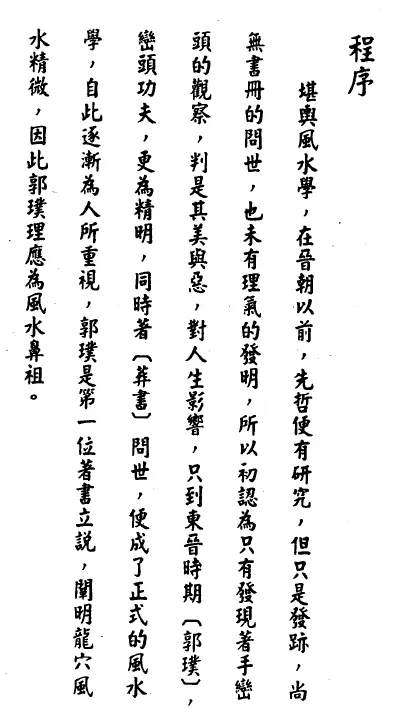 程序
堪輿風水學，在晉朝以前，先哲便有研究，但只是發跡，尚
無書冊的問世，也未有理氣的發明，所以初認為只有發現著手巒
頭的觀察，判是其美與惡，對人生影響，只到東晉時期〔郭璞〕，
巒頭功夫，更為精明，同時著〔葬書〕問世，便成了正式的風水
學，自此逐漸為人所重視，郭璞是第一位著書立説，闡明龍穴風
水精微，因此郭璞理應為風水鼻祖。